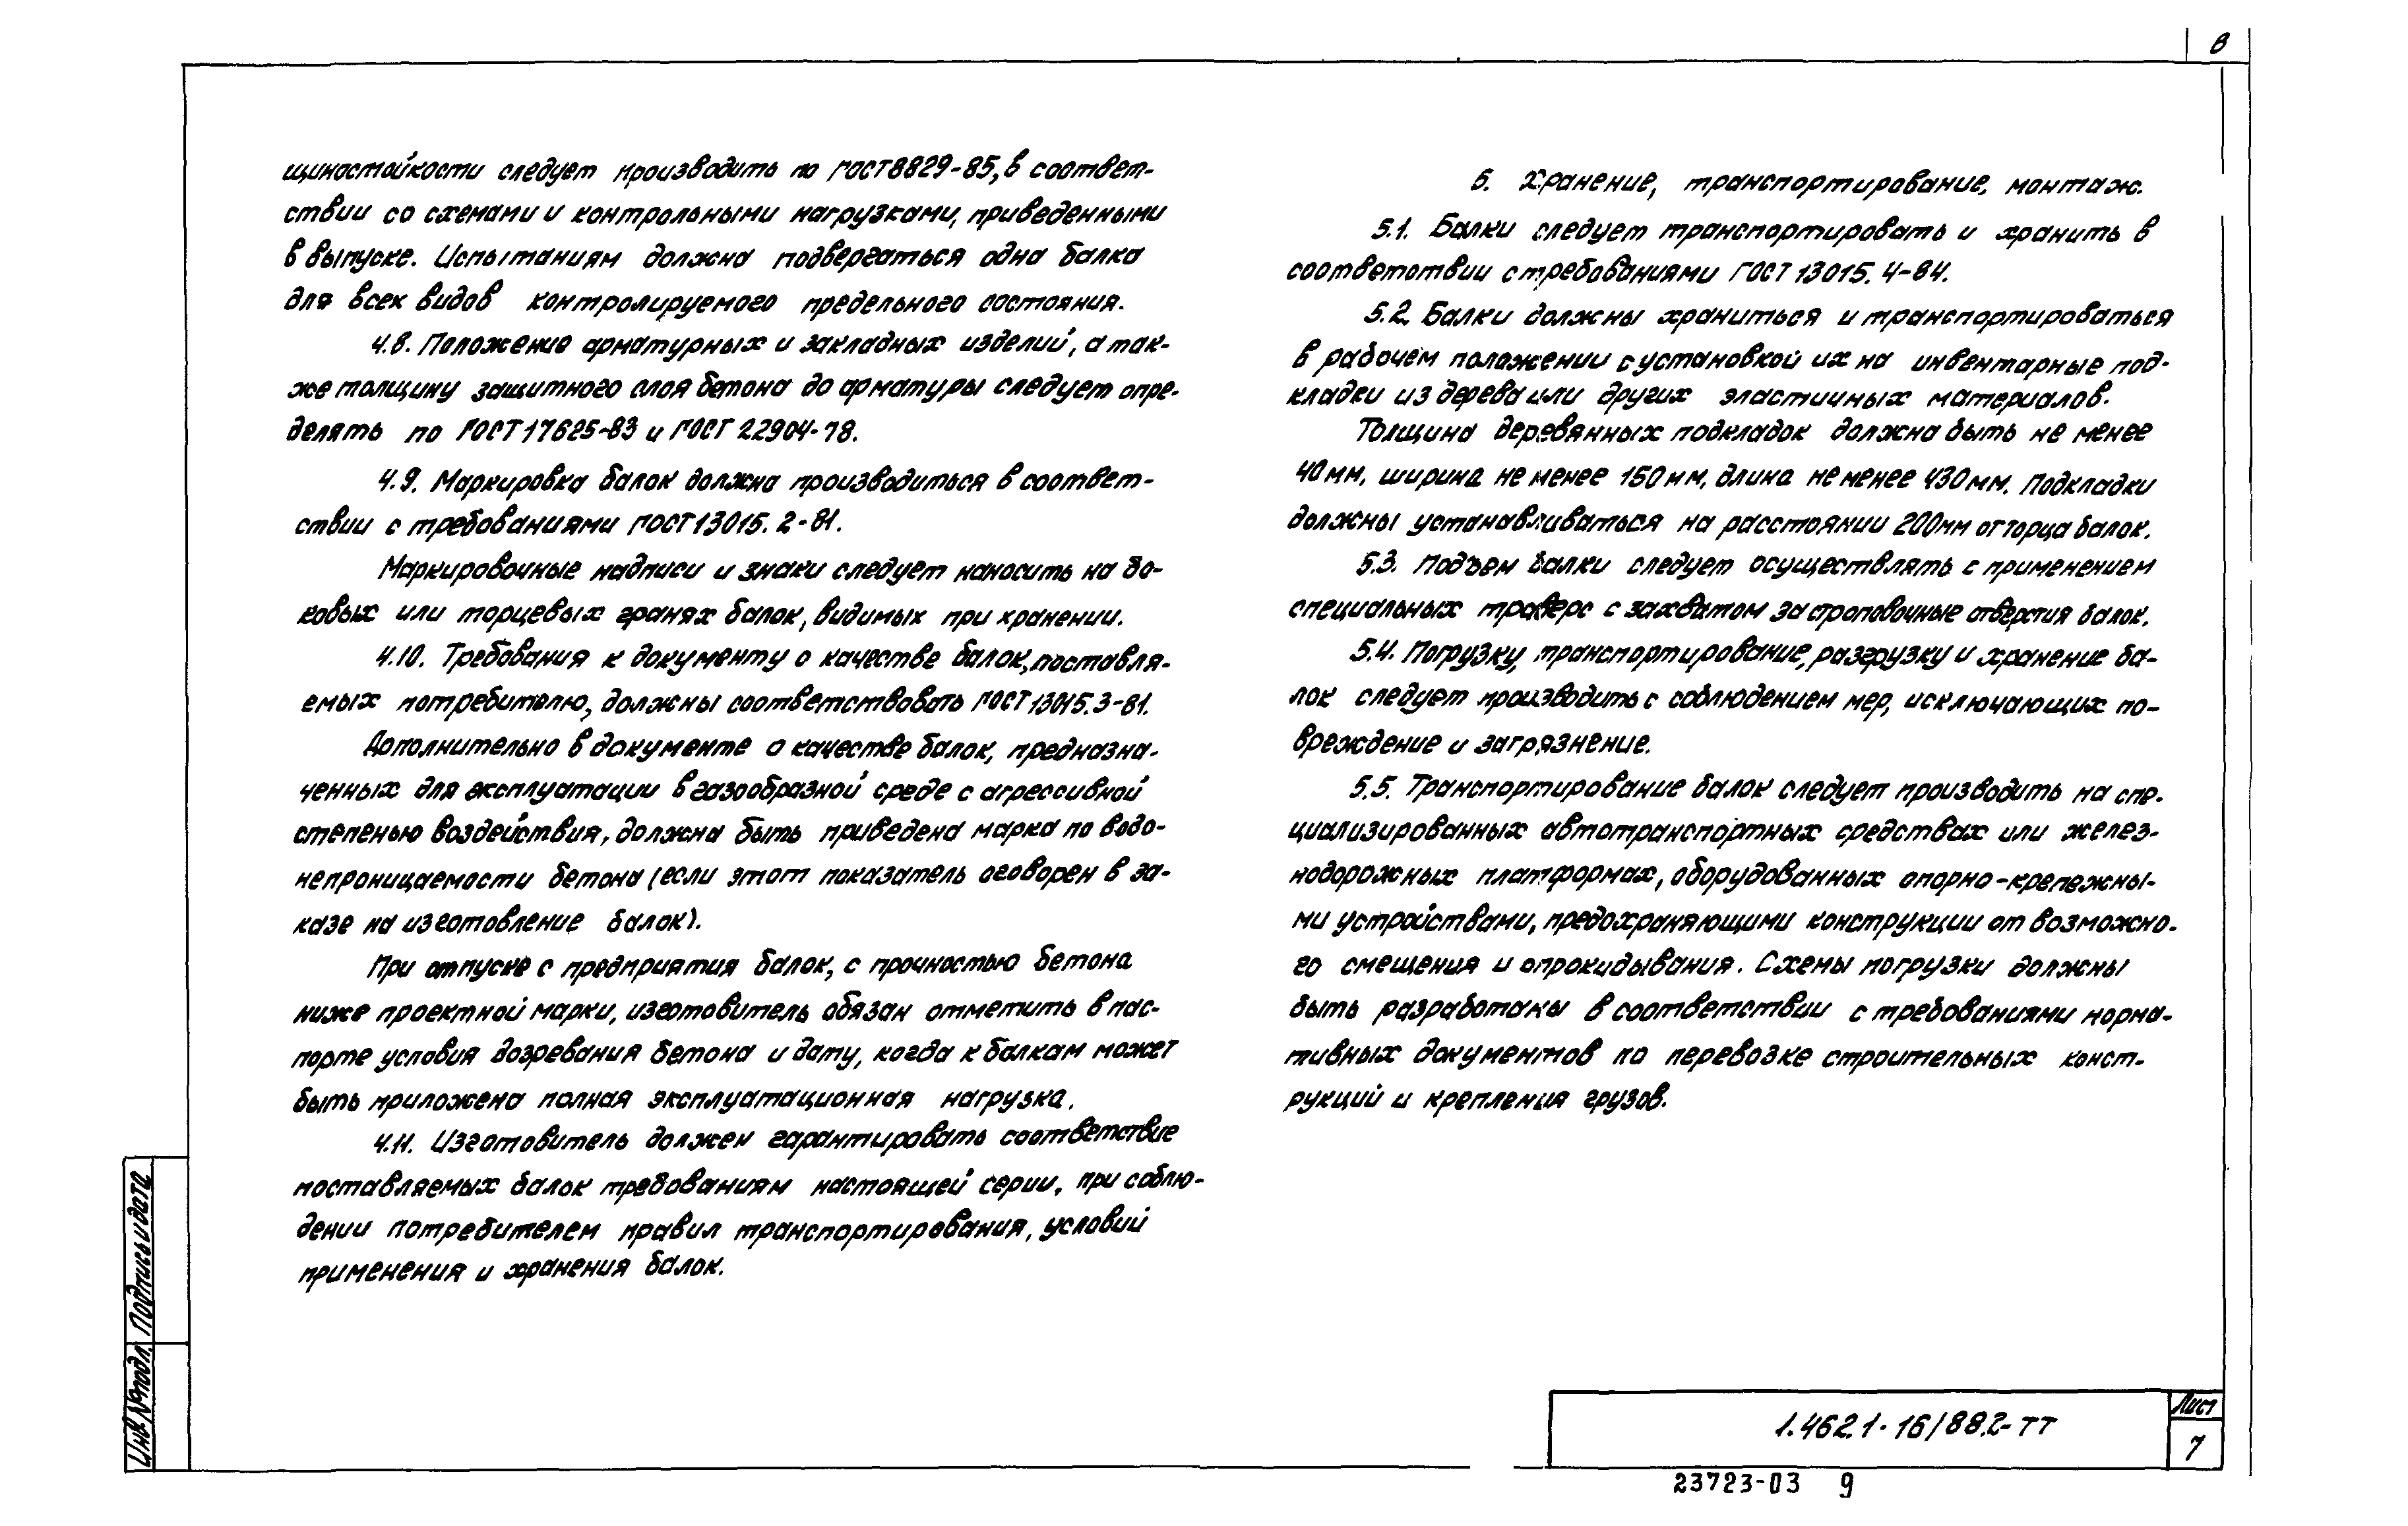 8
щиностойкости следует производить по ГОСТ 8829-85, в соответ-
ствии со схемами и контрольными нагрузками, приведенными
в выпуске. Испытаниям должна подвергаться одна балка
для всех видов контролируемого предельного состояния.
4.8. Положение арматурных и закладных изделий, а так-
же толщину защитного слоя бетона до арматуры следует опре-
делять по ГОСТ 17625-83 и ГОСТ 22904-78.
4.9. Маркировка балок должна производиться в соответ-
ствии с требованиями ГОСТ 13015.2-81.
Маркировочные надписи и знаки следует наносить на бо-
ковых или торцевых гранях балок, видимых при хранении.
4.10. Требования к документу о качестве балок, поставля-
емых потребителю, должны соответствовать ГОСТ 13015.3-81.
Дополнительно в документе о качестве балок, предназна-
ченных для эксплуатации в газообразной среде с агрессивной
степенью воздействия, должна быть приведена марка по водо-
непроницаемости бетона (если этот показатель оговорен в за-
казе на изготовление балок).
При отпуске с предприятия балок, с прочностью бетона
ниже проектной марки, изготовитель обязан отметить в пас-
порте условия дозревания бетона и дату, когда к балкам может
быть приложена полная эксплуатационная нагрузка.
4.11. Изготовитель должен гарантировать соответствие
поставляемых балок требованиям настоящей серии, при соблю-
дении потребителем правил транспортирования, условий
применения и хранения балок.
5. Хранение, транспортирование, монтаж.
5.1. Балки следует транспортировать и хранить в
соответствии с требованиями ГОСТ 13015.4-84.
5.2. Балки должны храниться и транспортироваться
в рабочем положении с установкой их на инвентарные под-
кладки из дерева или других эластичных материалов.
Толщина деревянных подкладок должна быть не менее
40мм, ширина не менее 150мм, длина не менее 430мм. Подкладки
должны устанавливаться на расстоянии 200мм от торца балок.
5.3. Подъем балки следует осуществлять с применением
специальных траверс с захватом за строповочные отверстия балок.
5.4. Погрузку, транспортирование, разгрузку и хранение ба-
лок следует производить с соблюдением мер, исключающих по-
вреждение и загрязнение.
5.5. Транспортирование балок следует производить на спе-
циализированных автотранспортных средствах или желез-
нодорожных платформах, оборудованных опорно-крепежны-
ми устройствами, предохраняющими конструкции от возможно-
го смещения и опрокидывания. Схемы погрузки должны
быть разработаны в соответствии с требованиями норма-
тивных документов по перевозке строительных конст-
рукций и крепления грузов.
Инв.№подл. Подпись и дата
1.462.1-16/88.2-ТТ
Лист
7
23723-03 9